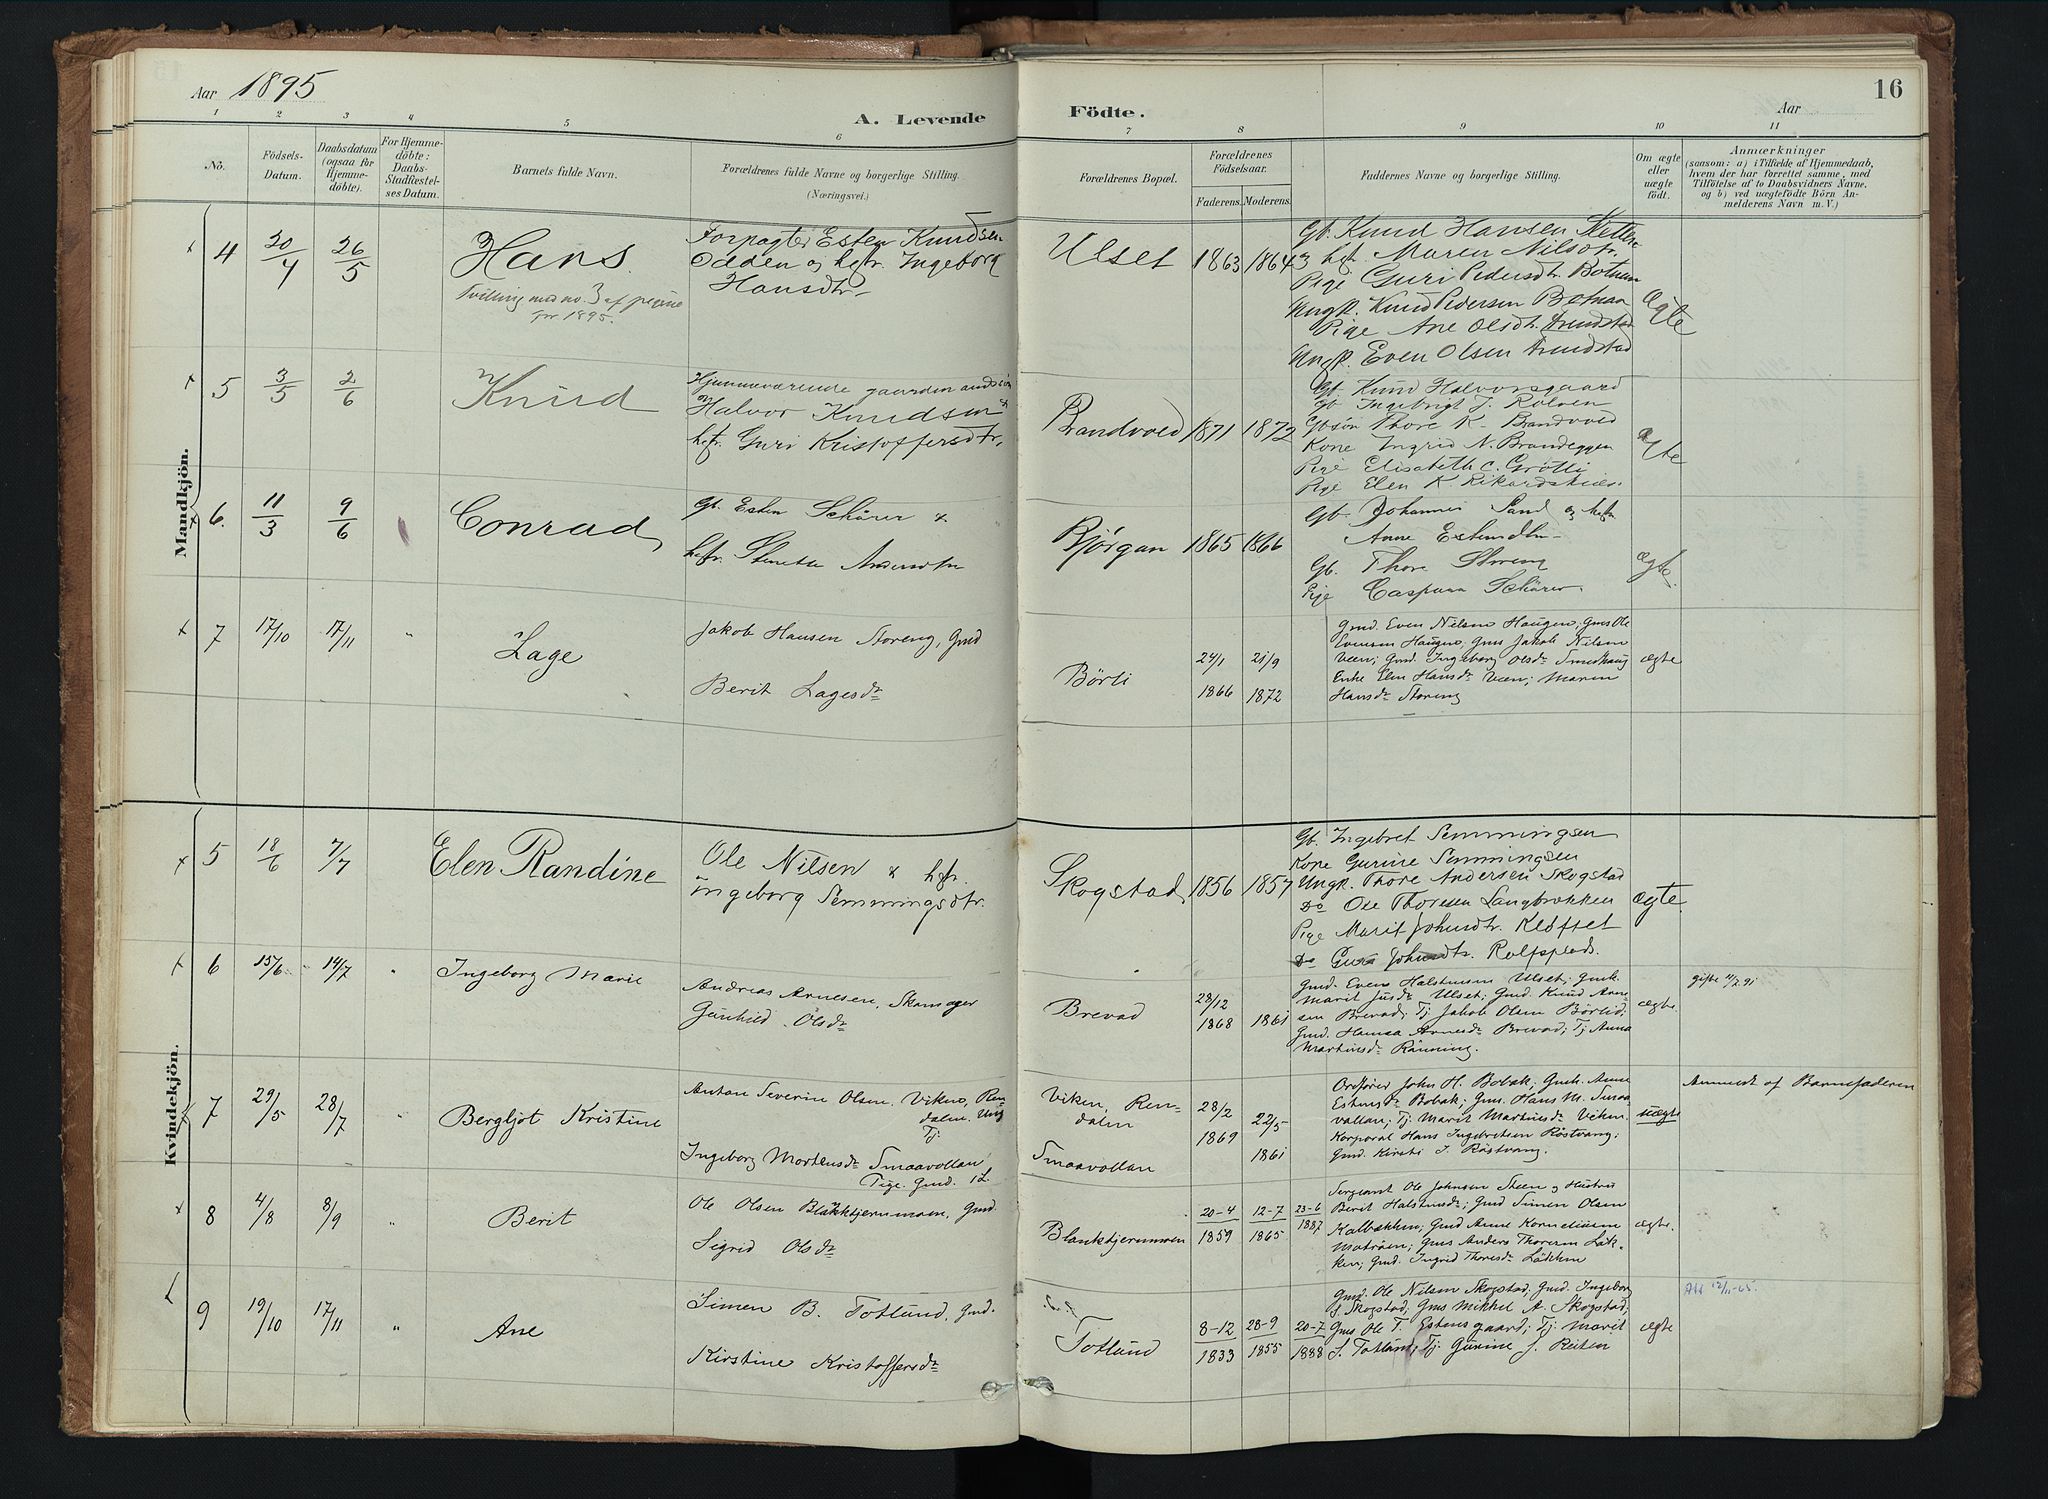 Aar 1895
A. Levende Födte.
16
Aar
1 2 3 4 5 6 7 8 9 10 11
No.
Födsels-
Datum.
Daabsdatum
(ogsaa för
Hjemme-
döbte).
For Hjemme-
döbte:
Daabs-
Stadfæstel-
ses Datum.
Barnets fulde Navn.
Forældrenes fulde Navne og borgerlige Stilling.
(Næringsvei.)
Forældrenes Bopæl.
Forældrenes
Födselsaar.
Faderens. Moderens.
Faddernes Navne og borgerlige Stilling.
Om ægte
eller
uægte
födt.
Anmærkninger
(saasom: a) i Tilfælde af Hjemmedaab,
hvem der har forrettet samme, med
Tilföielse af to Daabsvidners Navne,
og b) ved uægtefödte Börn An-
melderens Navn m. V.)
Mandkjön.
4 20/4 26/5 Hans.
Tvilling med no. 3 af pigerne
for 1895.
Forpagter Esten Knudsen
Odden og hstr. Ingeborg
Hansdtr.
Ulset 1863 1864
Gb. Knud Hansen
hstr. Maren Nilsdtr.
Pige Guri Pedersdtr. Botnan
Ungk. Knud Pedersen Botnan
Pige Ane Olsdtr. Trondstad
Ungk. Even Olsen Trondstad
Ægte
5 3/5 2/6 Knud
Hjemmeværende gaardmandssøn
Halvor Knudsen &
hstr. Guri Kristoffersdtr.
Brandvold 1871 1872
Gb. Knud Halvorsgaard
Gb. Ingebrigt J. Rolven
Gbsøn Thore K. Brandvold
Kone Ingrid N. Brandeggen
Pige Elisabeth C. Grøtli
Pige Elen K.
Ægte
6. 11/3 9/6 Conrad
Gb. Esten Schärer &
hstr. Andersdtr
Bjørgan 1865 1866
Gb. Johannes Sand og hstr
Anne Estensdtr
Gb. Thore Streng
Pige Caspara Schärer.
Ægte.
7 17/10 17/11 " Lage
Jakob Hansen Storeng, Gmd
Berit Lagesdr
Börli
24/1 1866 21/9 1872
Gmd. Even Nilsen Haugen; Gms Ole
Evensen Haugen, Gms Jakob Nilsen
Veen; Gmd. Ingeborg Olsdr Smedhaug
Enke Elen Hansdr Veen; Maren
Hansdr Storeng
ægte
Kvindekjön.
5 18/6 7/7 Elen Randine
Ole Nilsen & hstr.
Ingeborg Semmingsdtr.
Skogstad 1856 1857
Gb. Ingebret Semmingsen
Kone Gurine Semmingsen
Ungk. Thore Andersen Skogstad
Do Ole Thoresen Langbrækken
Pige Marit Johnsdtr. Kløftet
Do Johnsdtr.
Ægte.
6 15/6 14/7 " Ingeborg Marie
Andreas Arnesen, Skomager
Gunhild Olsdr
Brevad
28/12 1868 1861
Gmd. Even Halstensen Ulset; Gmk.
Marit Jusdr Ulset; Gmd. Knud Arne-
sen Brevad; Tj. Jakob Olsen Börlid;
Gmd. Hansa Arnesdr Brevad; Tj. Anna
Martinsdr Rönning.
ægte
7 29/5 28/7 " Bergljot Kristine
Anton Severin Olsen Viken, Ren-
dalen. Ung
Tj.
Ingeborg Mortensdr Smaavollan
Pige. Gmd. 1L.
Viken, Ren-
dalen
Smaavollan
28/2 1869 22/5 1861
Ordförer John H. Bobak; Gmk. Anne
Estensdr Bobak; Gms. Hans M. Smaa-
vollan; Tj. Marit Martinsdr Viken.
Korporal Hans Ingebretsen Röstvang;
Gmd. Kirsti J. Röstvang.
uægte
Anmeldt af Barnefaderen
8 4/8 8/9 " Berit
Ole Olsen Blanktjernmoen, Gmd.
Sigrid Olsdr
Blanktjernmoen
20-4 1859 12-7 1865 23-6 1887
Sergeant Ole Johnsen Steen og Hustru
Berit Halstensdr; Gmd Simen Olsen
Kalbækken; Gmd Anne Kornelius
Motröen; Gms Anders Thoresen Läk-
ken; Gmd. Ingrid Thoresdr Läkken
ægte.
9 19/10 17/11 " Ane
Simen B. Totlund, Gmd.
Kirstine Kristoffersdr
Totlund
8-12 1833 28-9 1855 20-7 1888
Gmd. Ole Nilsen Skogstad, Gmd. Ingeborg
S. Skogstad; Gms Mikkel A. Skogstad;
Gms Ole T. Estensgaard; Tj. Marit
S. Totlund; Tj. Gurine J. Reiten
ægte
Att 12/11-65.